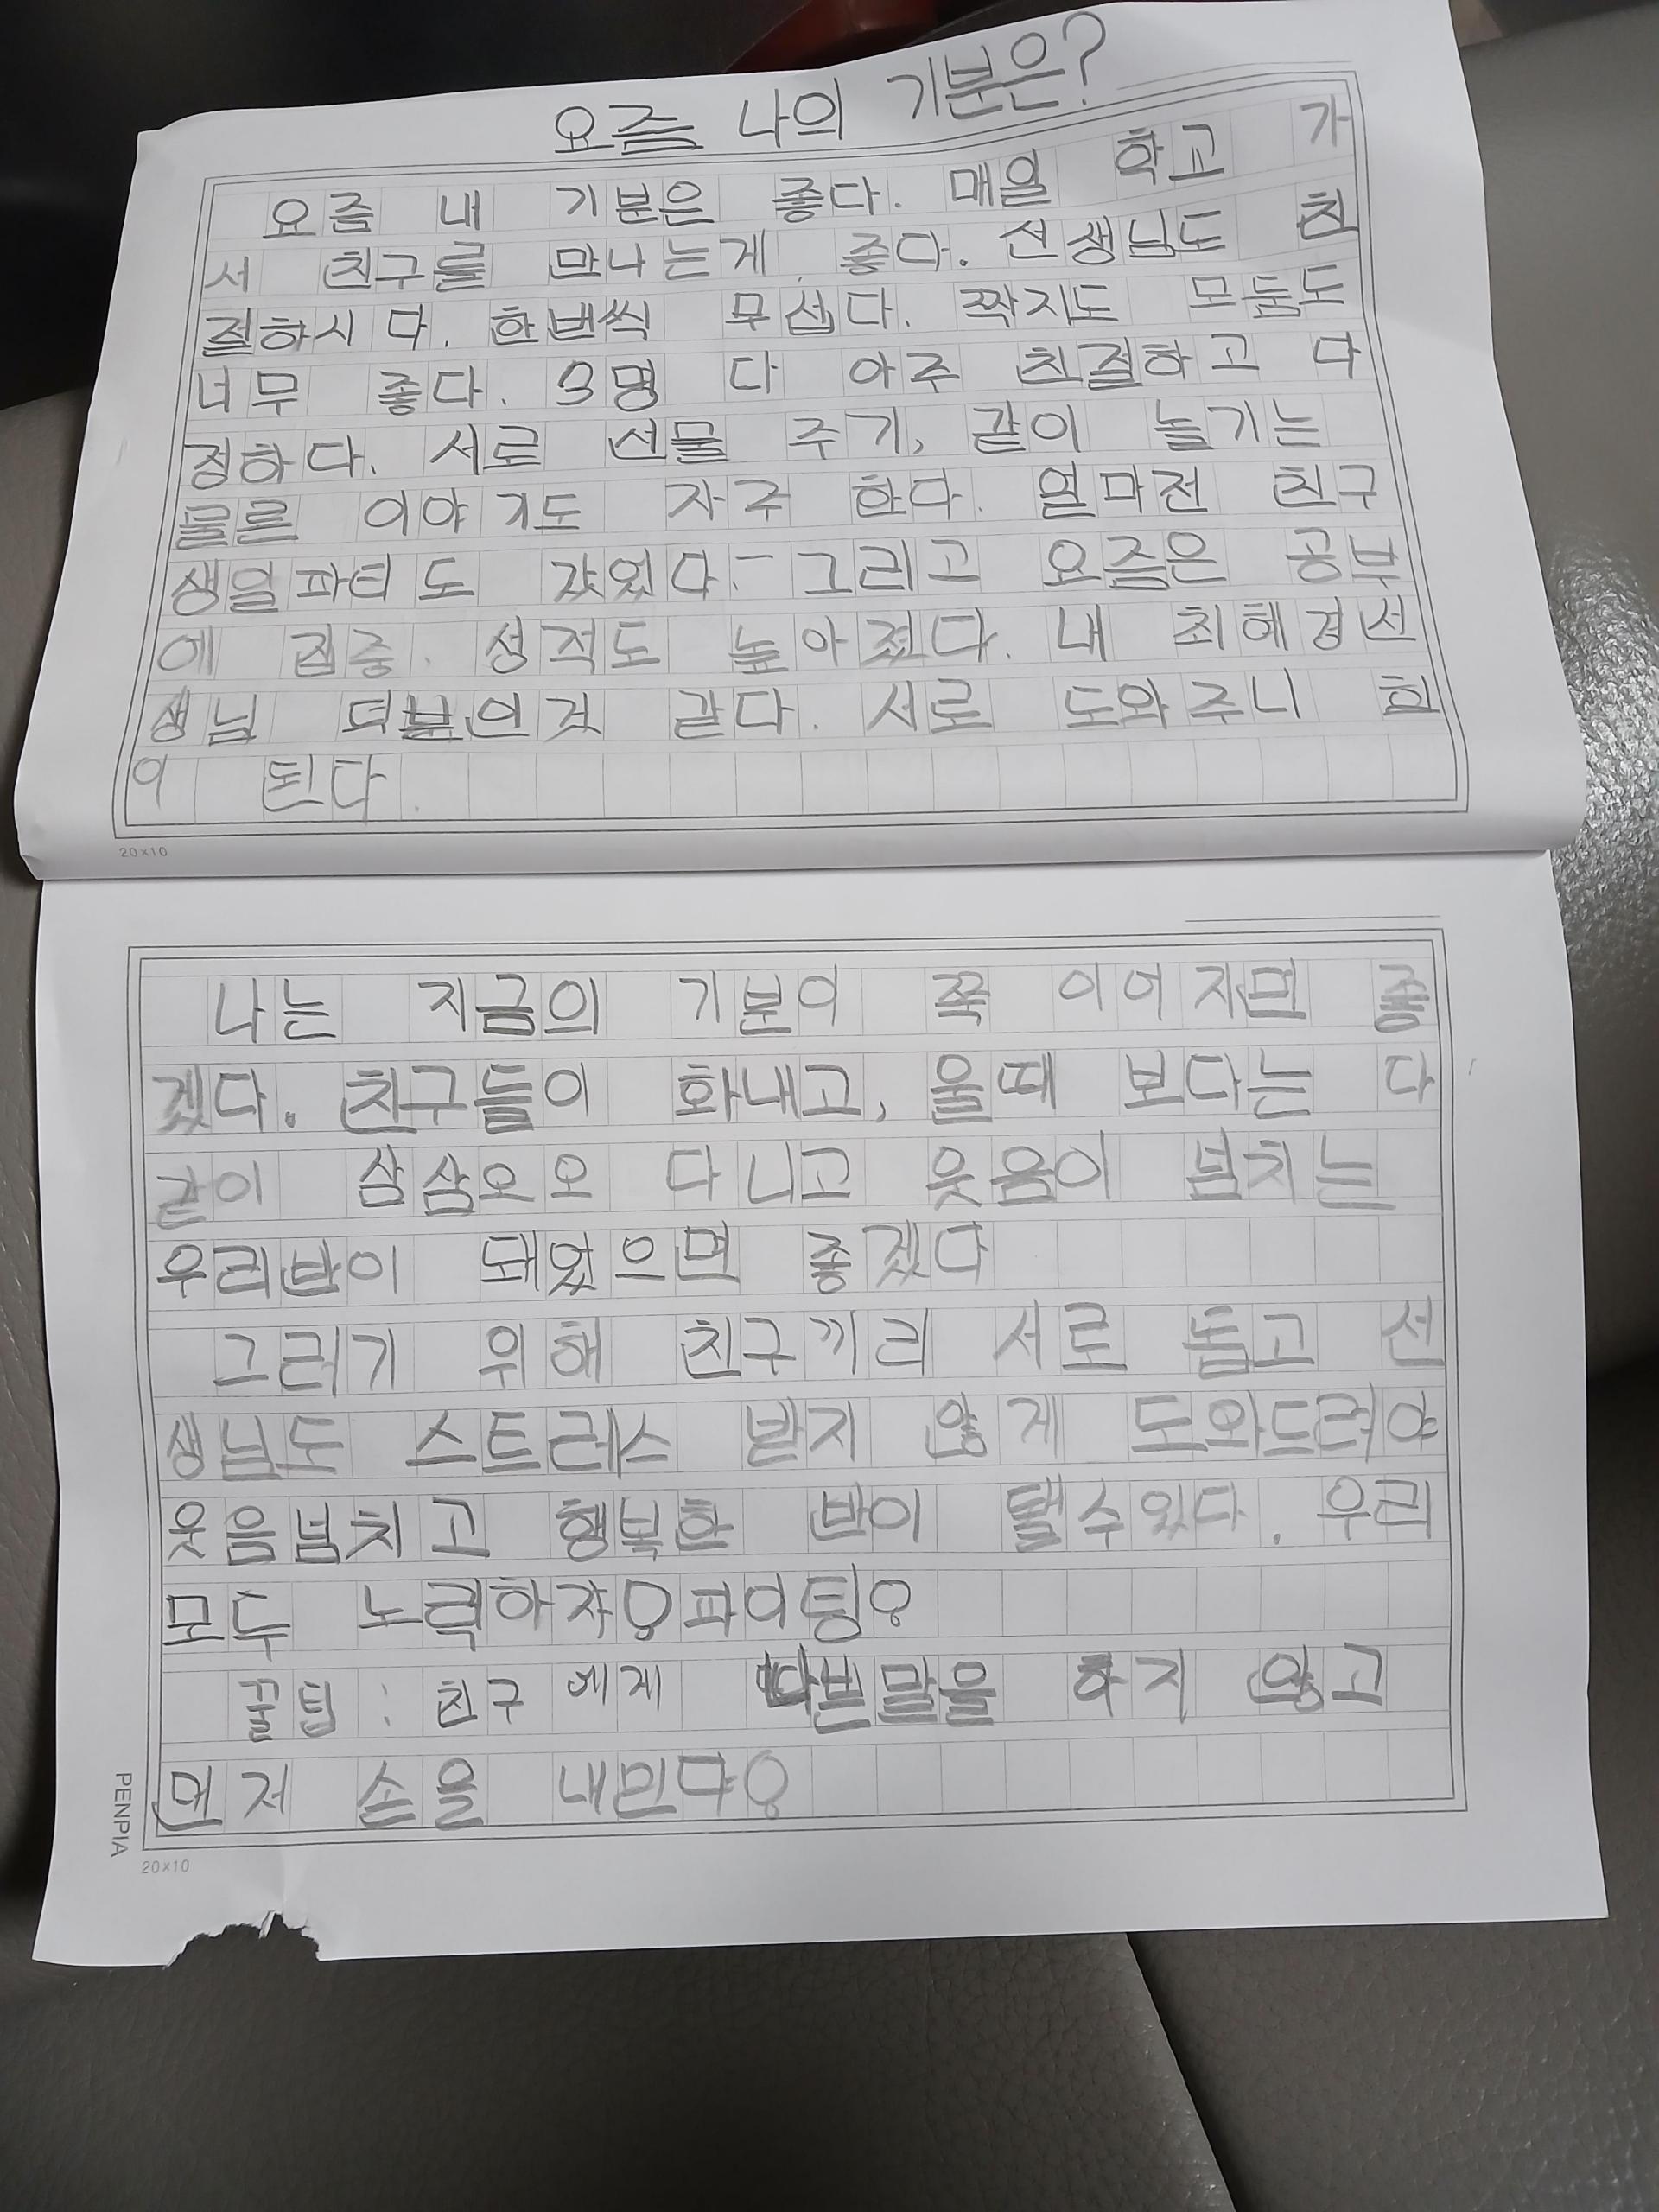 요즘 나의 기분은?
요즘 내 기분은 좋다. 매일 학교 가
서 친구를 만나는게 좋다. 선생님도 친
절하시다. 한번씩 무섭다. 짝지도 모둠도
너무 좋다. 3명 다 아주 친절하고 다
정하다. 서로 선물 주기, 같이 놀기는
물른 이야기도 자주 한다. 얼마전 친구
생일파티도 갔었다. 그리고 요즘은 공부
에 집중. 성적도 높아졌다. 내 최혜경선
생님 덕분인것 같다. 서로 도와주니 힘
이 된다.
20×10
나는 지금의 기분이 쭉 이어지면 좋
겠다. 친구들이 화내고, 울때 보다는 다
같이 삼삼오오 다니고 웃음이 넘치는
우리반이 돼었으면 좋겠다
그러기 위해 친구끼리 서로 돕고 선
생님도 스트레스 받지 않게 도와드려야
웃음넘치고 행복한 반이 됄수있다. 우리
모두 노력하자! 파이팅!
꿀팁 : 친구에게 나쁜말을 하지 않고
먼저 손을 내민다!
PENPIA
20×10